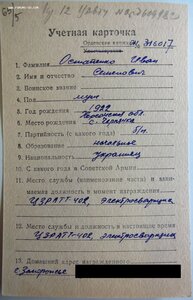 Учетная карточка
Орденская книжка
№ 316017
1. Фамилия Остапенко Иван
2. Имя и отчество Семенович
3. Воинское звание
4. Пол муж
5. Год рождения 1922
6. Место рождения
7. Партийность (с какого года) б/п
8. Образование начальное
9. Национальность украинец
10. С какого года в Советской Армии
11. Место службы (наименование части) и занимаемая должность в момент награждения
электросварщик
12. Место службы и должность в настоящее время
электросварщик
13. Домашний адрес награжденного
г. Запорожье